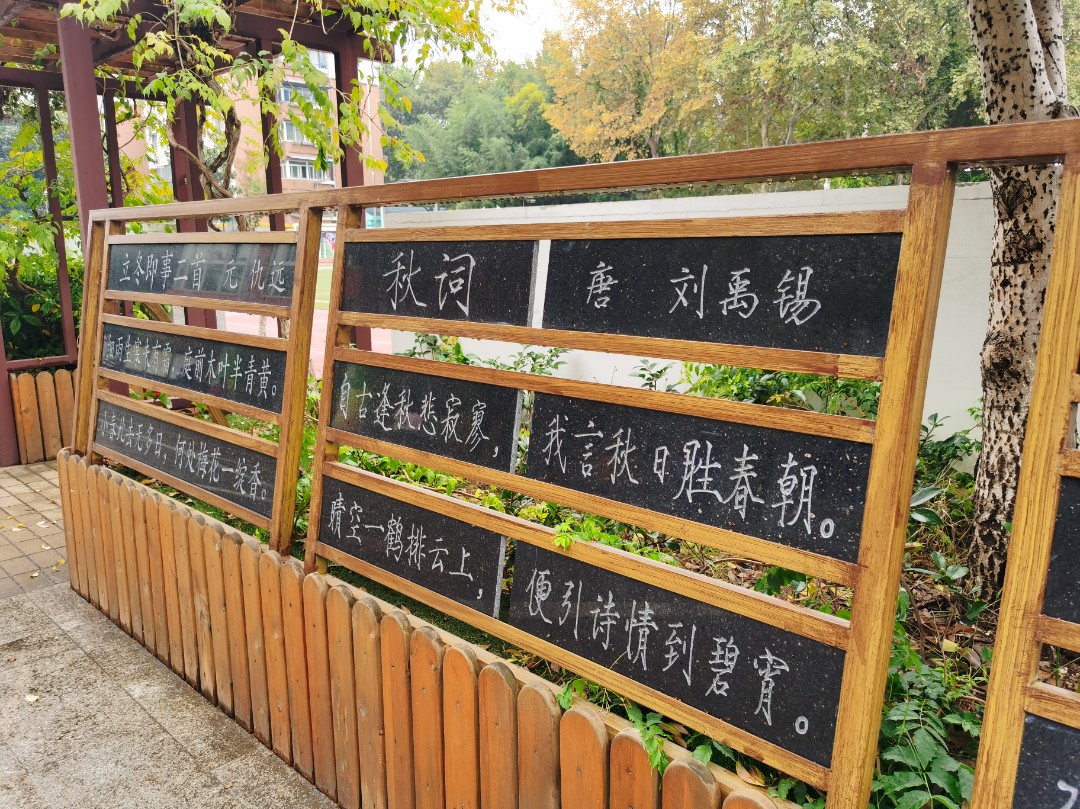 立冬即事二首 元 仇远
雨生寒未有霜,庭前木叶半青黄。
小春此去无多日,何处梅花一绽香。
秋词 唐 刘禹锡
自古逢秋悲寂寥,我言秋日胜春朝。
晴空一鹤排云上,便引诗情到碧霄。